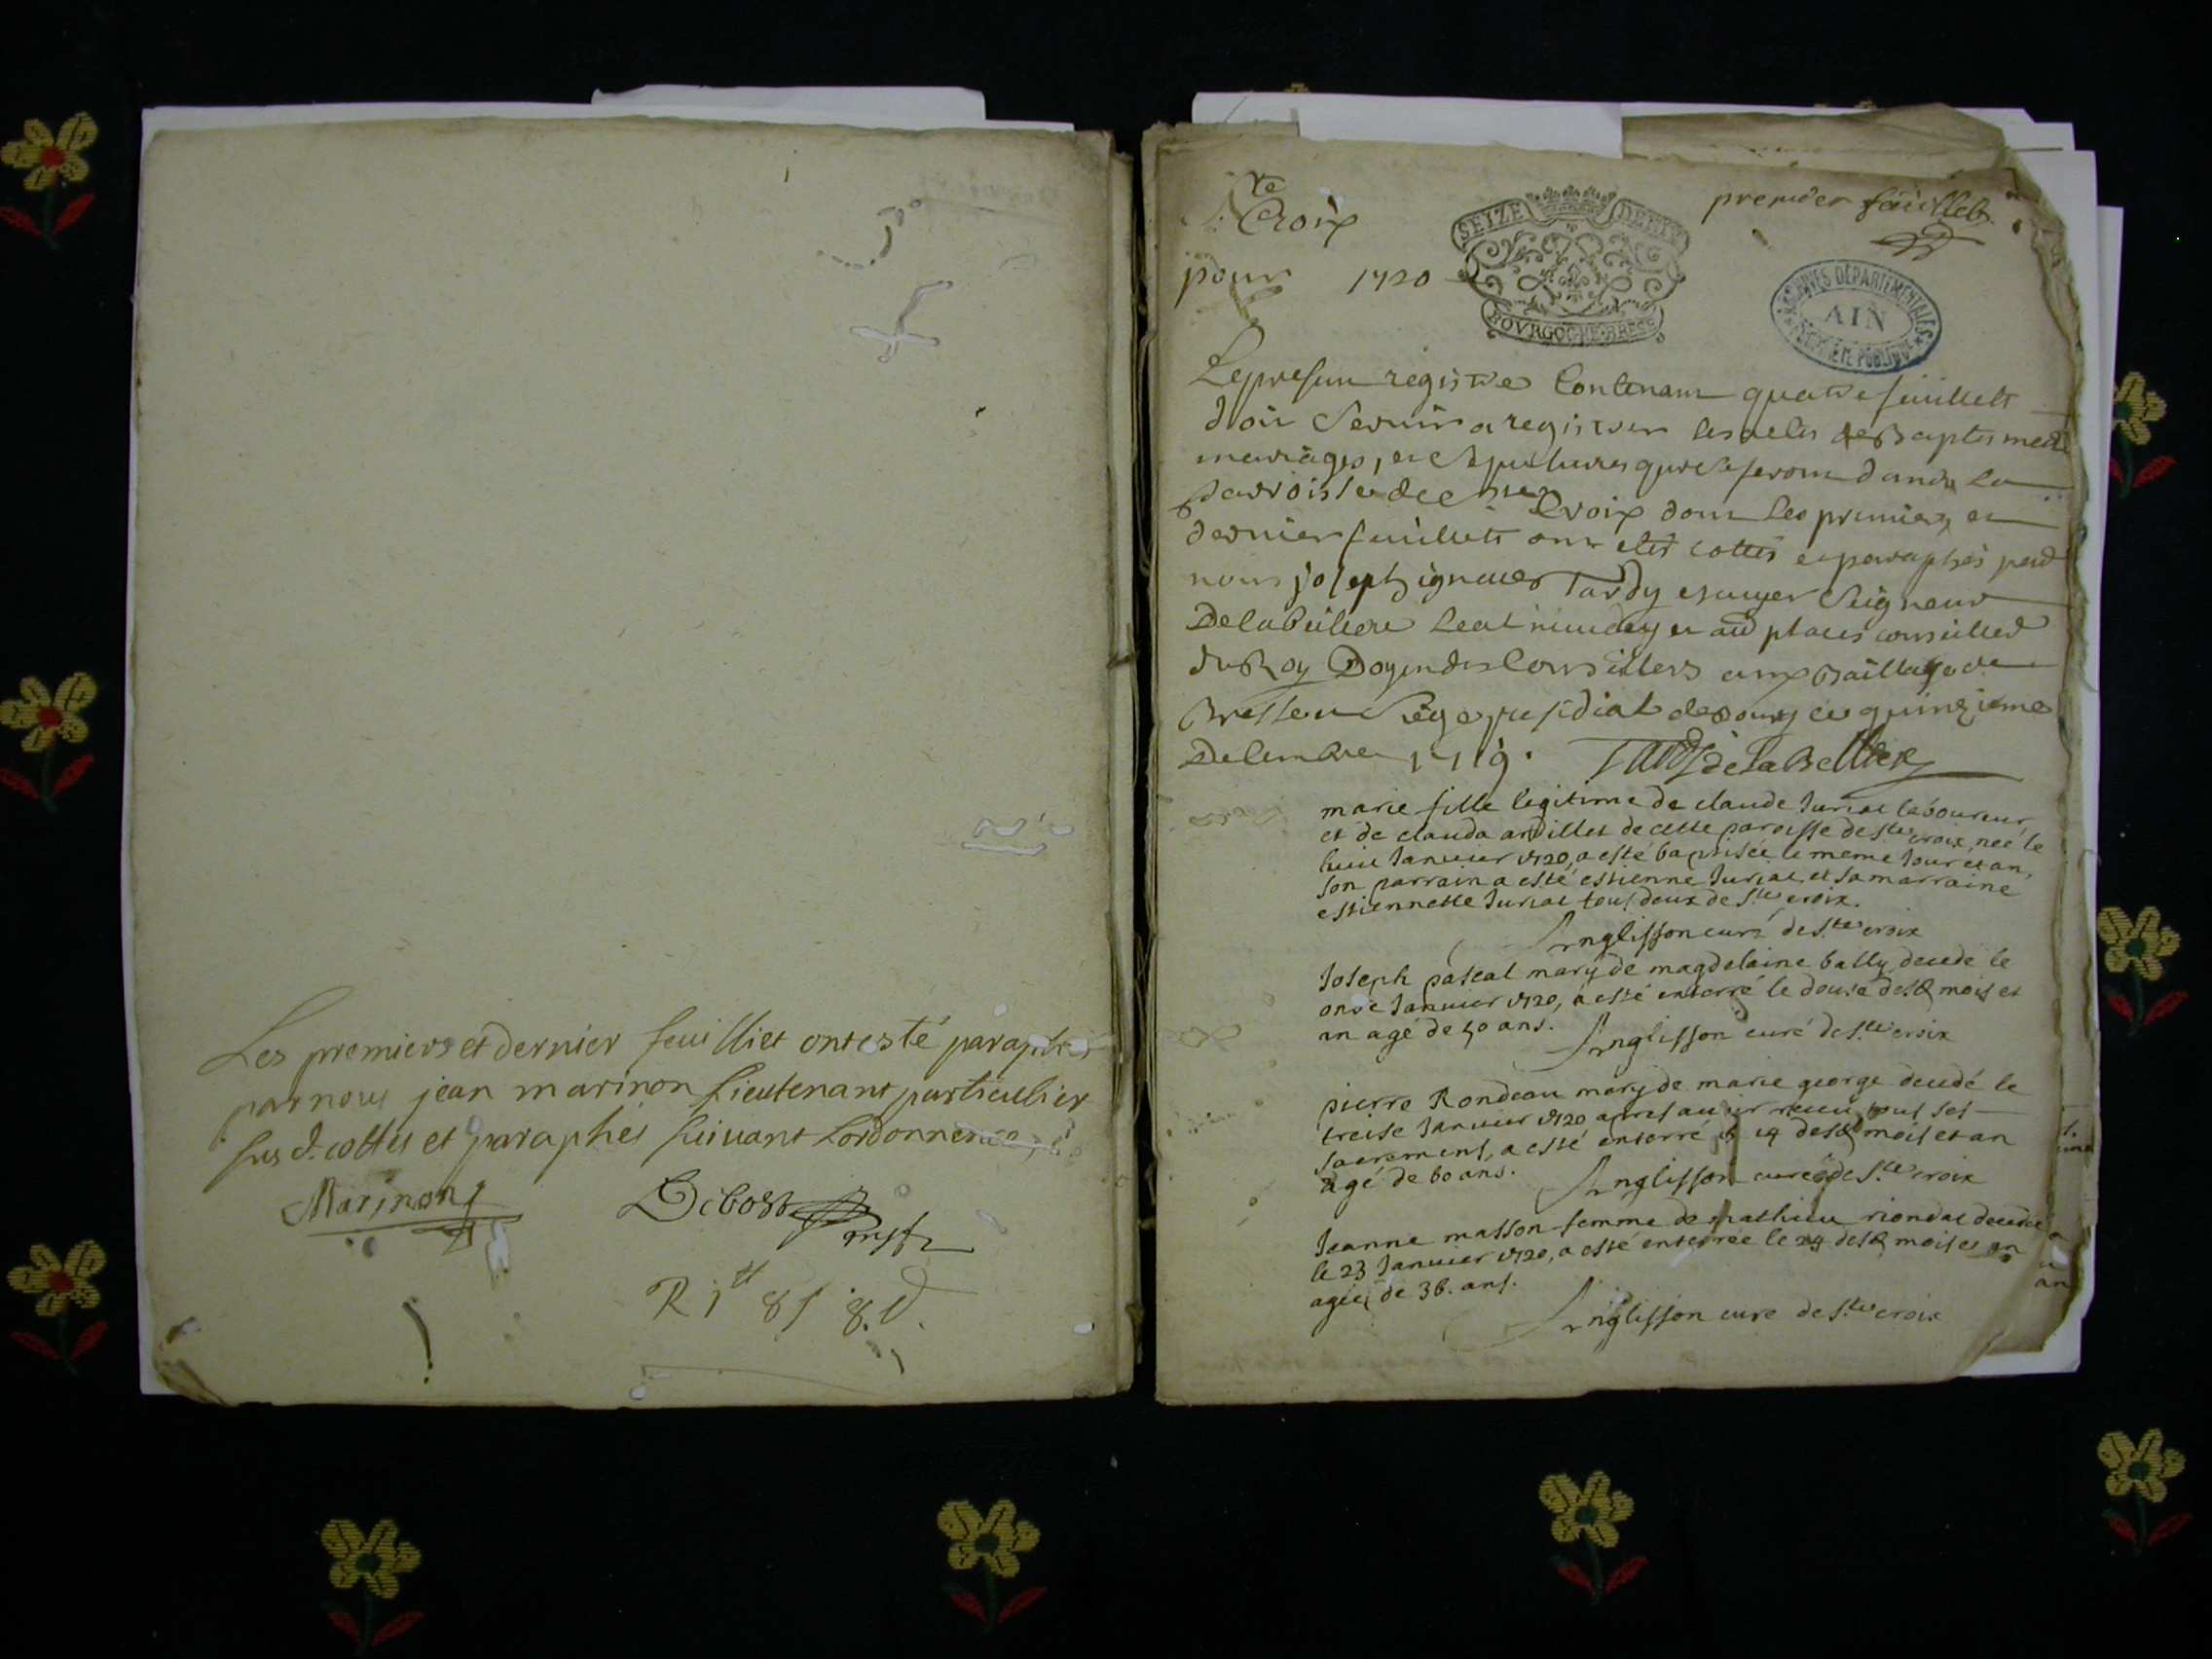 Les premiers et dernier feuilliet ont esté paraphés
par nous jean marinon Lieutenant particulier
sus d. cottés et paraphés suivant Lordonnence
Marinon
Debost
R 1tt 8s 8.d.
Ste Croix
pour 1720
SEIZE DENIE
BOVRGOGNE BRESSE
premier feuillet
ARCHIVES DÉPARTEMENTALES
AIN
PROPRIÉTÉ PUBLIQUE
Le presen registre Contenant quatre feuillets
doit Servir a registrer les actes de Baptesmes
mariages, et Sepultures qui se feront dans la
parroisse de Ste Croix dont les premier et
dernier feuillets ont esté cottés et paraphés par
nous joseph ignace Tardy escuyer Seigneur
De la belliere et autres places conseiller
du Roy Doyen des Conseillers aux Baillage de
Bresse et Siege presidial de Bourg ce quinzieme
Decembre 1719. Tardy de la Belliere
marie fille legitime de claude Juriat laboureur
et de clauda ardillet de cette paroisse de Ste croix, née le
huit Janvier 1720, a esté baptisée le meme Jour et an,
son parrain a esté estienne Juriat, et sa marraine
estiennette Juriat tous deux de Ste croix.
Anglisson curé de Ste croix
Joseph pascal mary de magdelaine bally decedé le
onse Janvier 1720, a esté enterré le douse desd mois et
an agé de 50 ans. Anglisson curé de Ste croix
pierre Rondeau mary de marie george decedé le
treise Janvier 1720 apres avoir receu tous ses
sacremens, a esté enterré le 14 desd mois et an
agé de 60 ans. Anglisson curé de Ste croix
Jeanne masson femme de mathieu riondat decedée
le 23 Janvier 1720, a esté enterrée le 24 desd mois et an
agée de 36. ans.
Anglisson curé de Ste croix